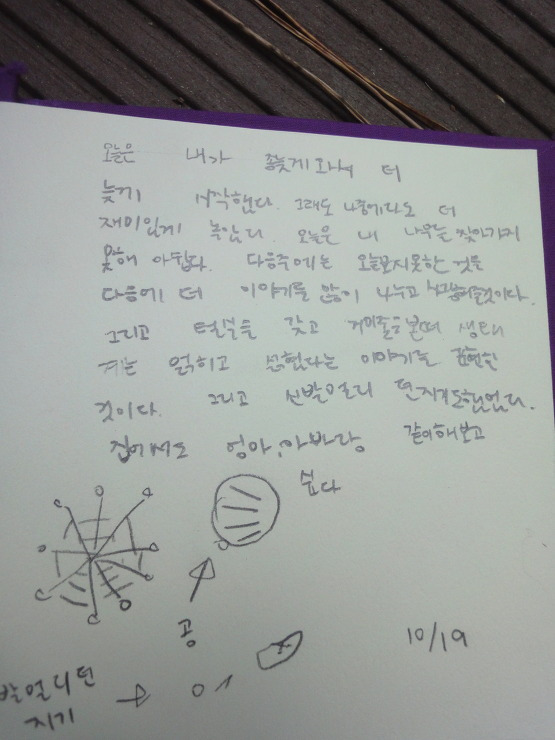 오늘은 내가 좀늦게 와서 더
늦게 시작했다. 그래도 나중에라도 더
재미있게 놀았다. 오늘은 내 나무를 찾아가지
못해 아쉽다. 다음주에는 오늘보지못한 것을
다음에 더 이야기를 많이 나누고
그리고 털실을 갖고 거미줄을 본떠 생태
계는 얽히고 설혔다는 이야기를 표현한
것이다. 그리고 신발멀리 던지기도했었다.
집에서도 엄마, 아빠랑 같이해보고
싶다
공
10/19
발멀리던
지기